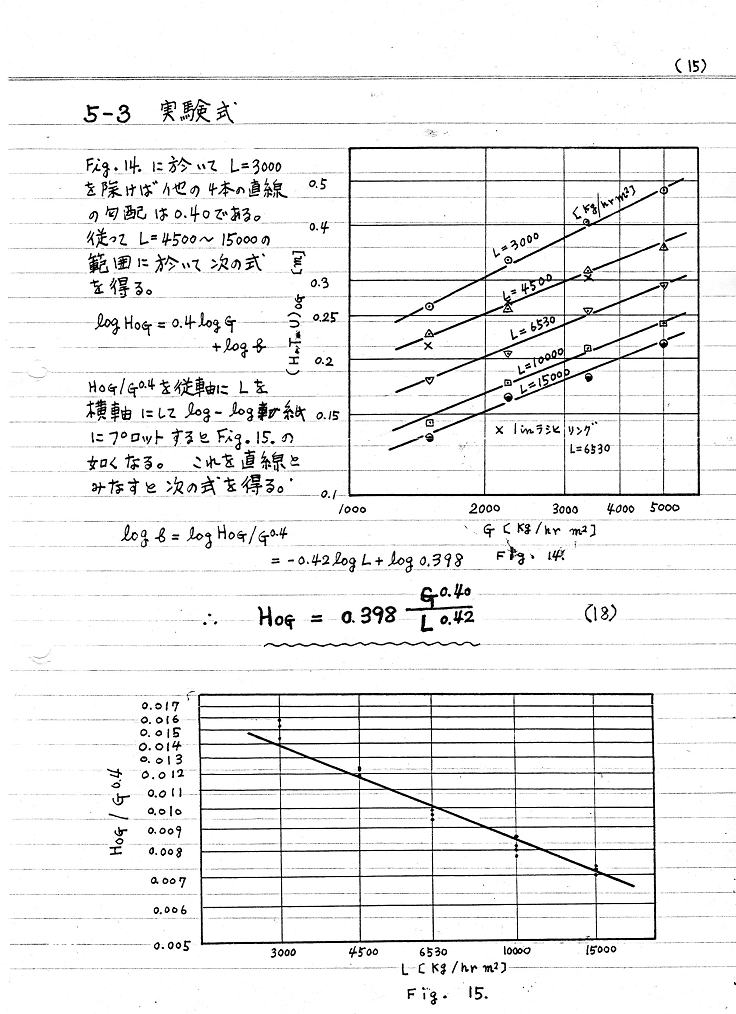 (15)
5-3 実験式
Fig. 14. に於いて L=3000
を除けば他の4本の直線
の勾配は0.40である。
従って L=4500～15000の
範囲に於いて次の式
を得る。
log HOG = 0.4 log G
+ log b
HOG/G^0.4 を従軸に Lを
横軸にして log-log 紙
にプロットするとFig. 15. の
如くなる。 これを直線と
みなすと次の式を得る。
(H.T.U)OG [m]
0.5
0.4
0.3
0.25
0.2
0.15
0.1
[Kg/hr m²]
L=3000
L=4500
L=6530
L=10000
L=15000
× 1inラシヒリング
L=6530
1000 2000 3000 4000 5000
G [Kg/hr m²]
Fig. 14.
log b = log HOG/G^0.4
= -0.42 log L + log 0.398
∴ HOG = 0.398 G^0.40 / L^0.42 (18)
HOG / G^0.4
0.017
0.016
0.015
0.014
0.013
0.012
0.011
0.010
0.009
0.008
0.007
0.006
0.005
3000 4500 6530 10000 15000
L [Kg/hr m²]
Fig. 15.